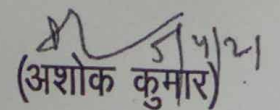 5/4/21
(अशोक कुमार)